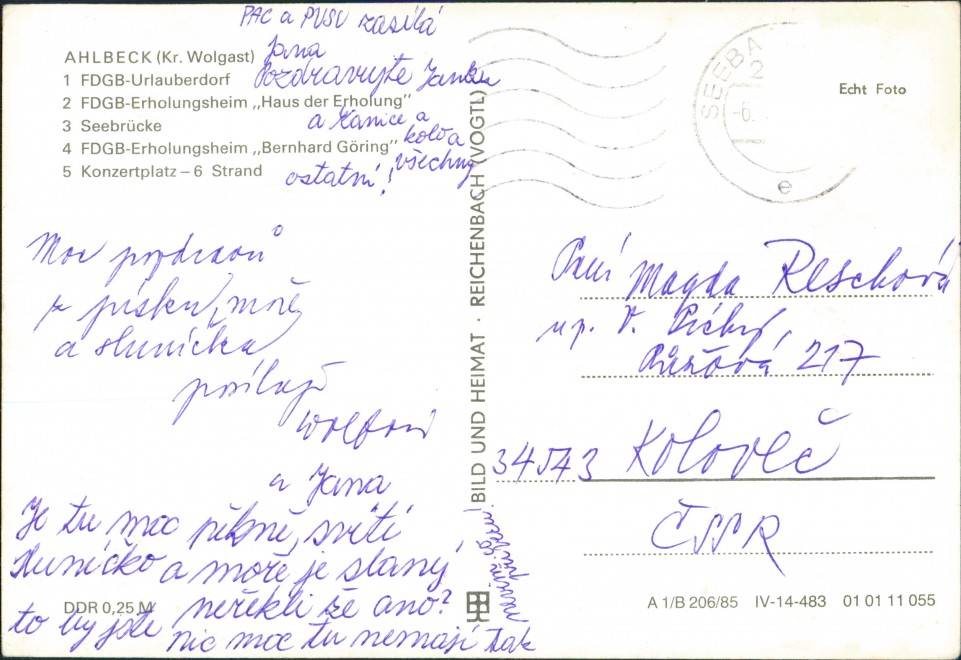 PAC a PUSU zasílá
Jana
Pozdravujte Janku
a Kanice a
kolo a
všechny
ostatní!
AHLBECK (Kr. Wolgast)
1 FDGB-Urlauberdorf
2 FDGB-Erholungsheim „Haus der Erholung"
3 Seebrücke
4 FDGB-Erholungsheim „Bernhard Göring"
5 Konzertplatz – 6 Strand
Moc pozdravů
z písku, moře
a sluníčka
posílají
Wolfovi
a Jana
Je tu moc pěkně, svítí
sluníčko a moře je slaný
to by jste neřekli že ano?
nic moc tu nemají tak
DDR 0,25 M
BILD UND HEIMAT · REICHENBACH (VOGTL)
SEEBA
2
-6.
e
Echt Foto
Paní Magda Reschová
up. V.
Růžová 217
34543 Koloveč
ČSSR
A 1/B 206/85 IV-14-483 01 01 11 055